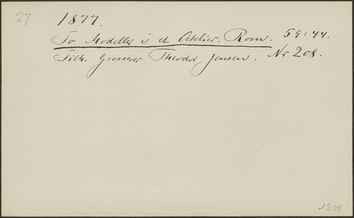 27
1877.
To Modeller i et Atelier. Rom. 59 : 44.
Tilh. Grosserer Theodor Jensen. No 208.